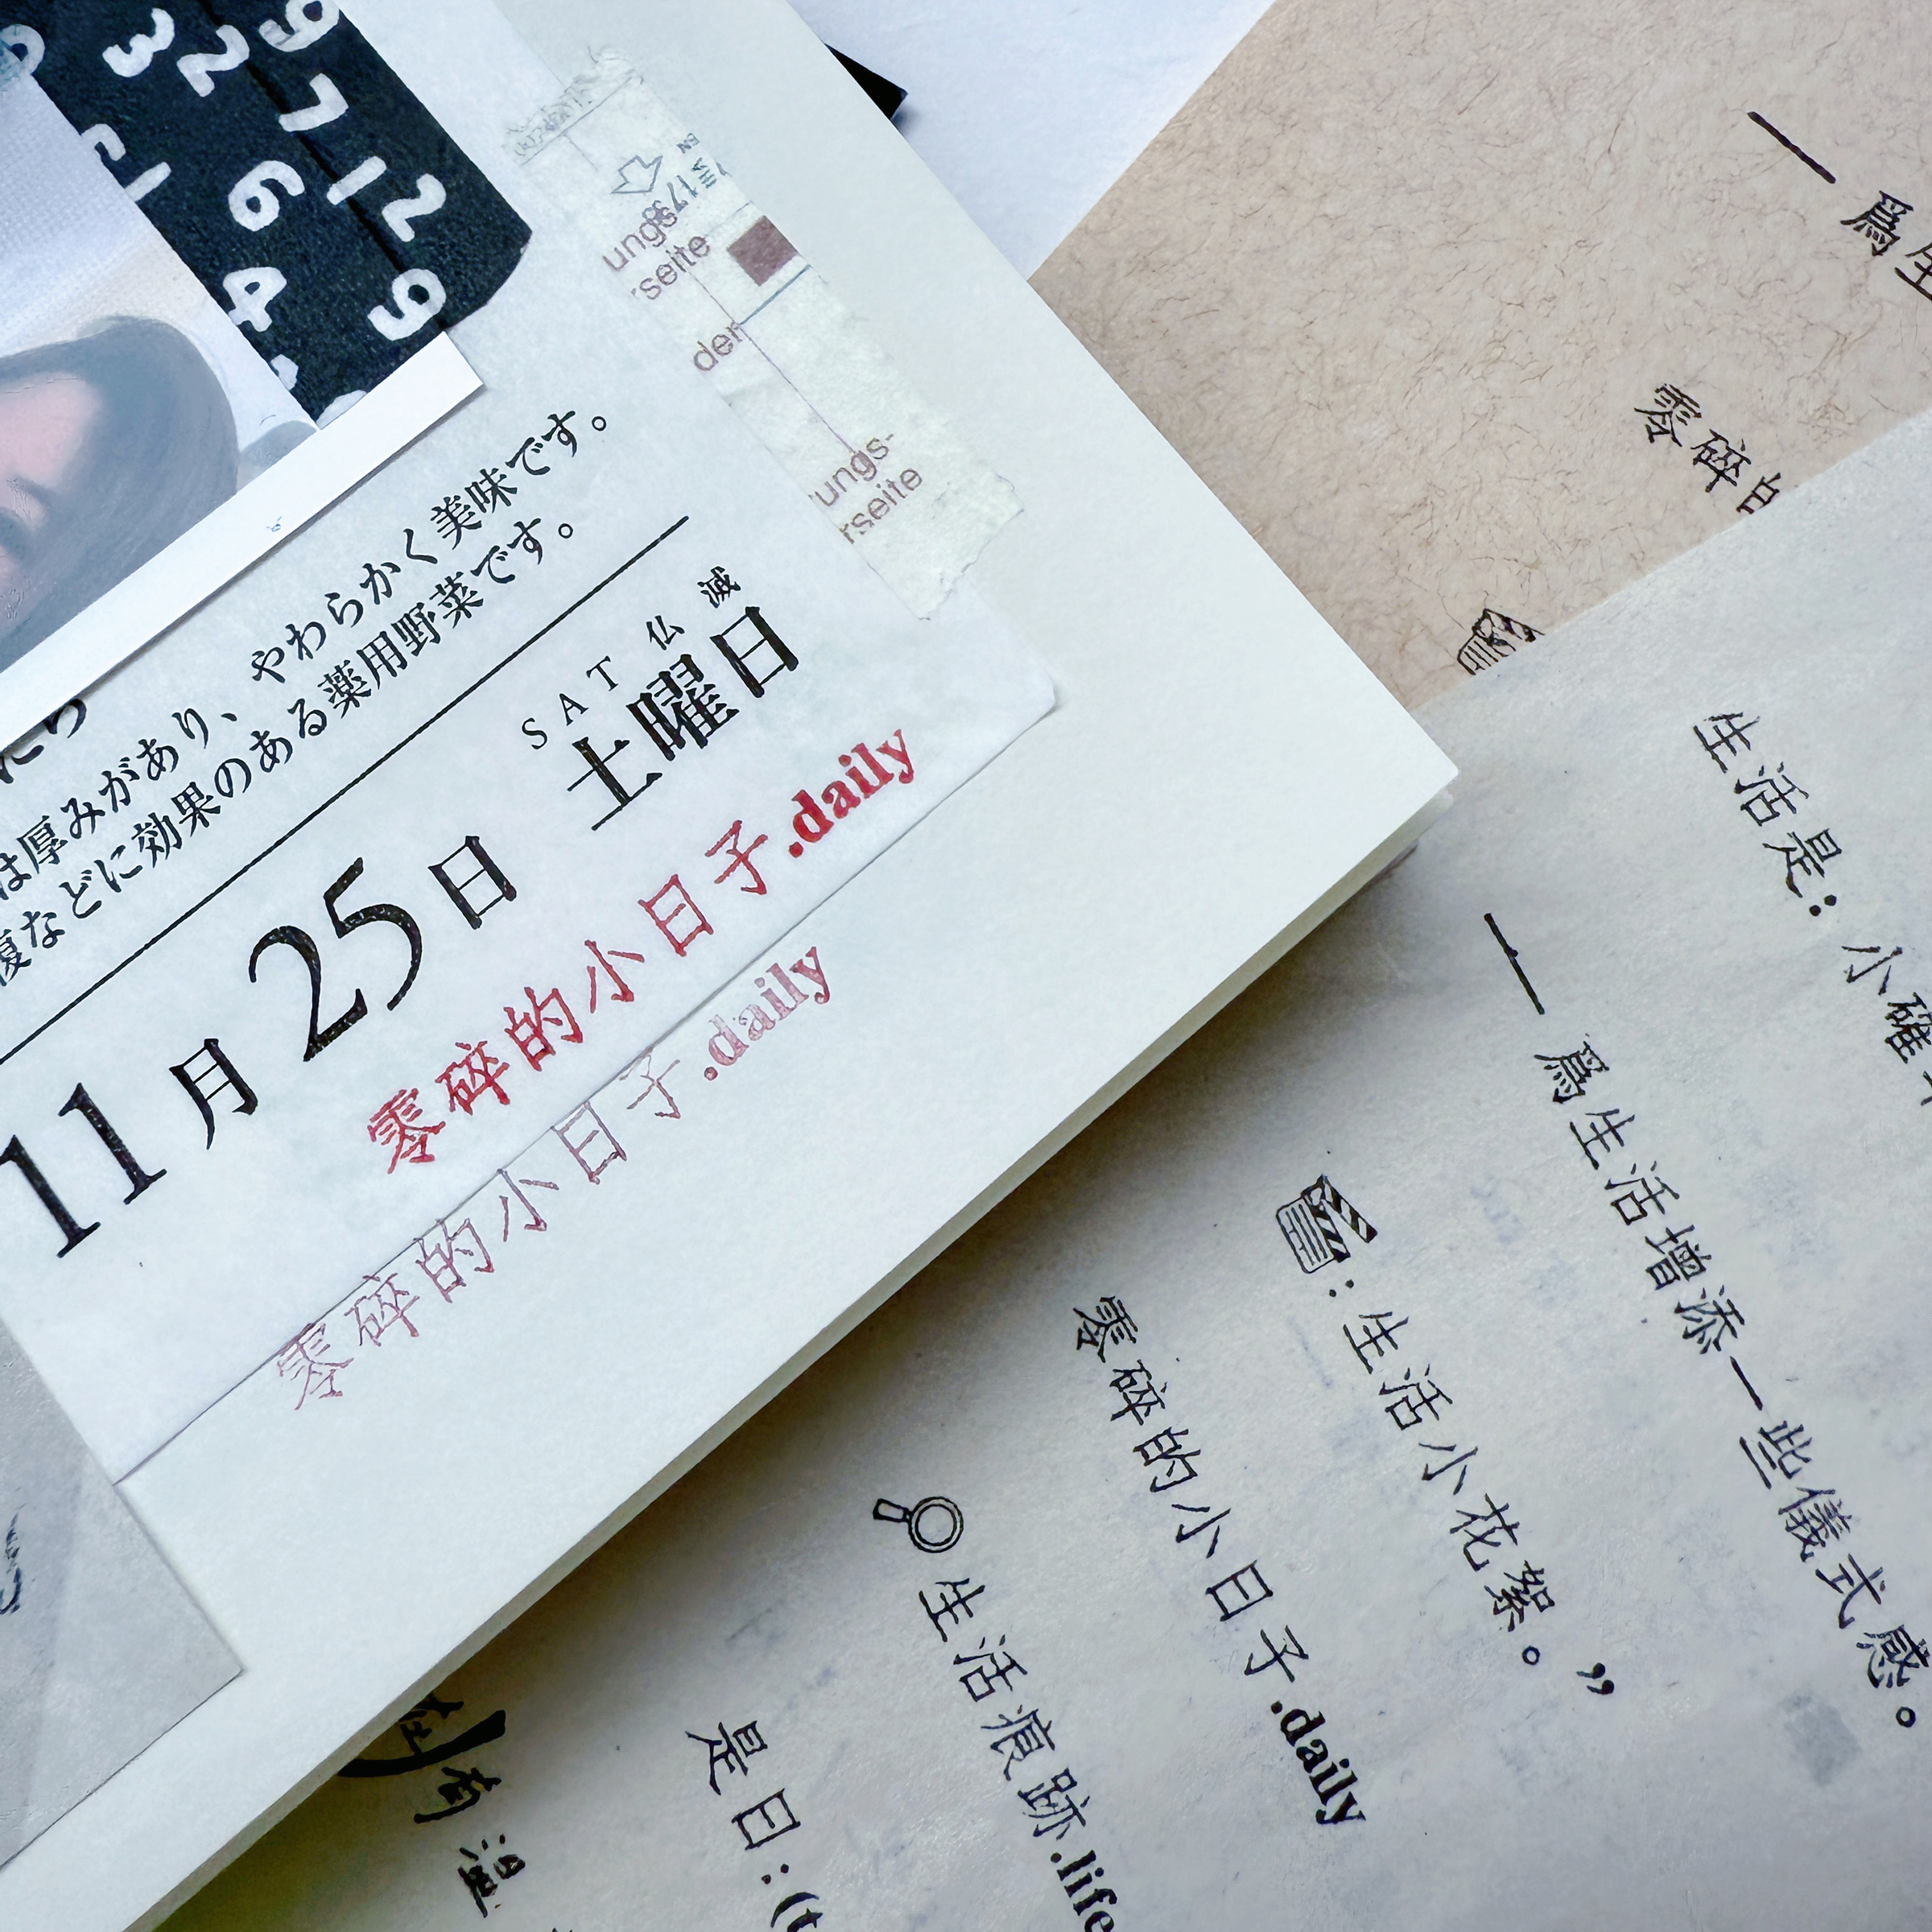 ungs
rseite
der
ungs-
rseite
やわらかく美味です。
は厚みがあり、
などに効果のある薬用野菜です。
SAT 仏滅
11月25日 土曜日
零碎的小日子.daily
零碎的小日子.daily
零碎的
生活是：小確
一 爲生活增添一些儀式感。
：生活小花絮。”
零碎的小日子.daily
生活痕跡.life
是日:(t
有溫